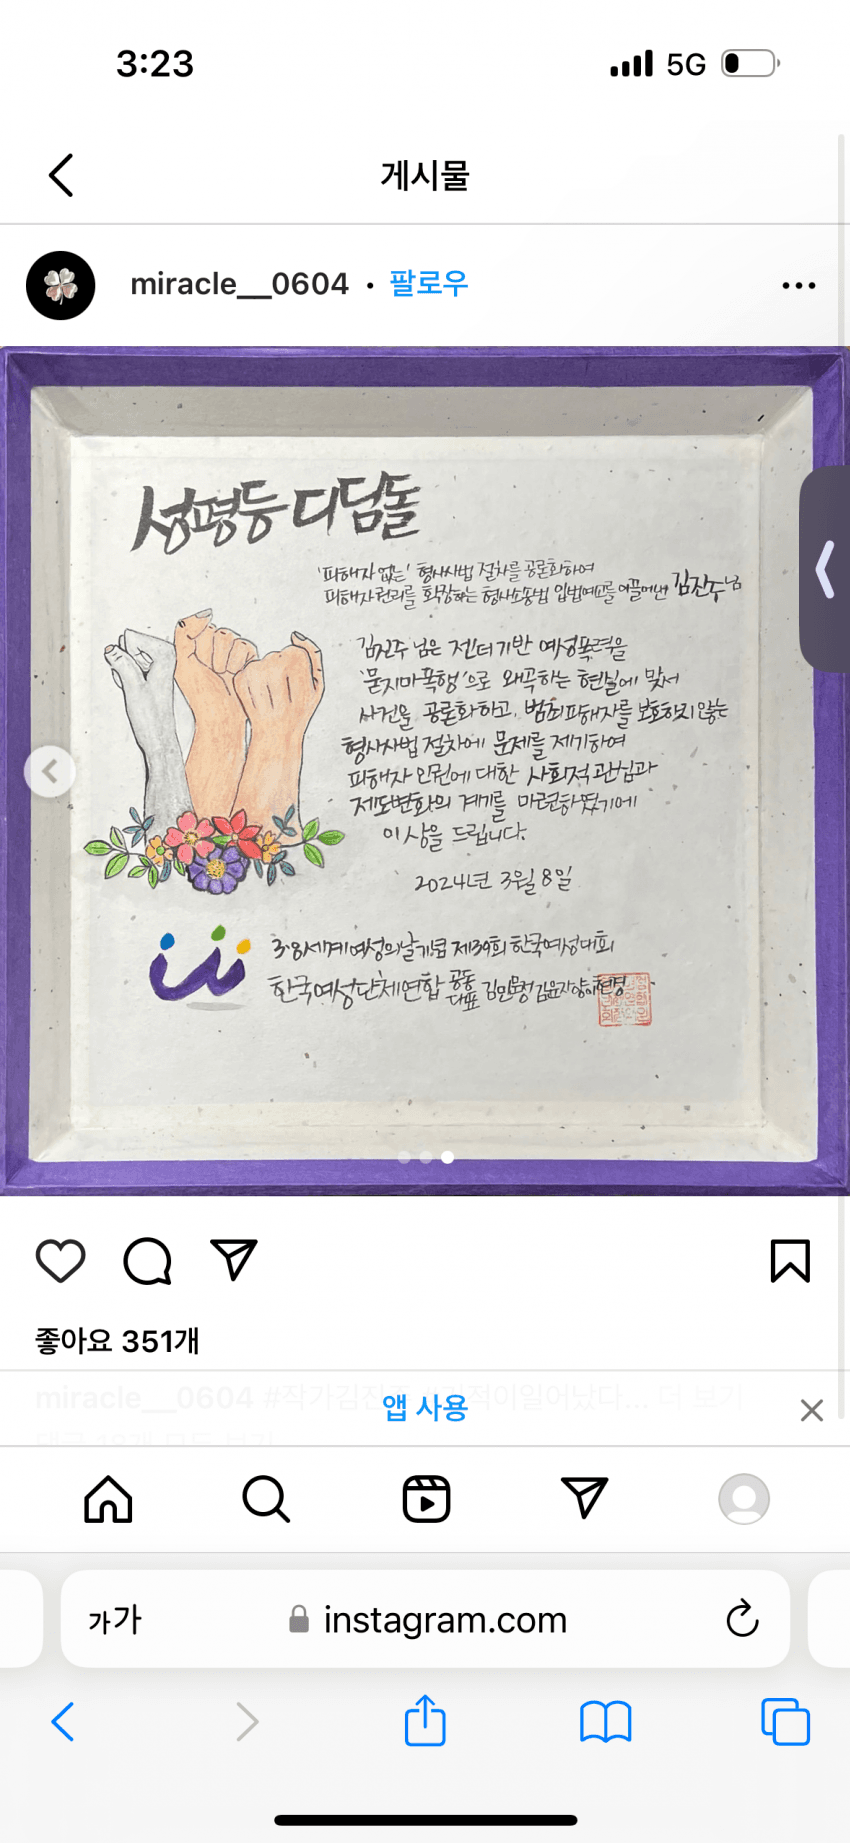 3:23
5G
게시물
miracle__0604 • 팔로우
성평등 디딤돌
'피해자 없는' 형사사법 절차를 공론화하여
피해자권리를 확장하는 형사소송법 입법예고를 이끌어낸 김진주님
김진주 님은 젠더기반 여성폭력을
'묻지마폭행'으로 왜곡하는 현실에 맞서
사건을 공론화하고, 범죄피해자를 보호하지 않는
형사사법 절차에 문제를 제기하여
피해자 인권에 대한 사회적 관심과
제도변화의 계기를 마련하였기에
이 상을 드립니다.
2024년 3월 8일
3·8세계여성의날기념 제39회 한국여성대회
한국여성단체연합 공동
대표 김민문정 김윤자 양이현경
좋아요 351개
miracle__0604 #작가김진주 #기적이일어났다... 더 보기
댓글 18개 모두 보기
앱 사용
가가
instagram.com